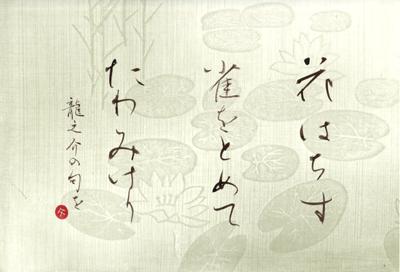 花はちす
雀をとめて
たわみけり
龍之介の句を